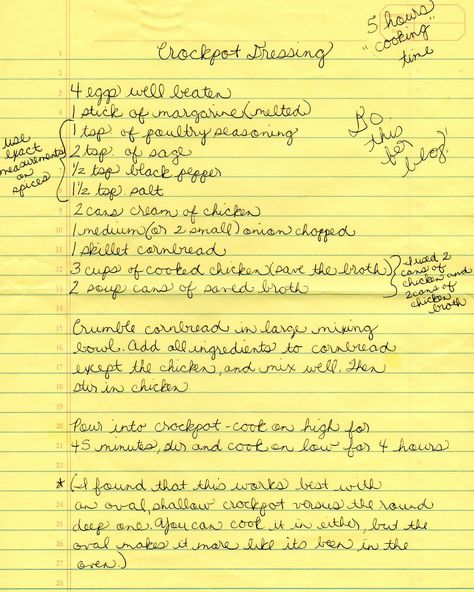 5 hours
"cooking"
time
Crockpot Dressing
4 eggs well beaten
1 stick of margarine (melted)
1 tsp of poultry seasoning
2 tsp. of sage
1/2 tsp black pepper
1 1/2 tsp salt
use
exact
measurements
on
spices
Do
this
for
blog!
2 cans cream of chicken
1 medium (or 2 small) onion chopped
1 skillet cornbread
3 cups of cooked chicken (save the broth)
2 soup cans of saved broth
I used 2
cans of
chicken and
2 cans of
chicken
broth
Crumble cornbread in large mixing
bowl. Add all ingredients to cornbread
except the chicken, and mix well. Then
stir in chicken
Pour into crockpot - cook on high for
45 minutes, stir and cook on low for 4 hours
* (I found that this works best with
an oval, shallow crockpot versus the round
deep one. You can cook it in either, but the
oval makes it more like its been in the
oven.)